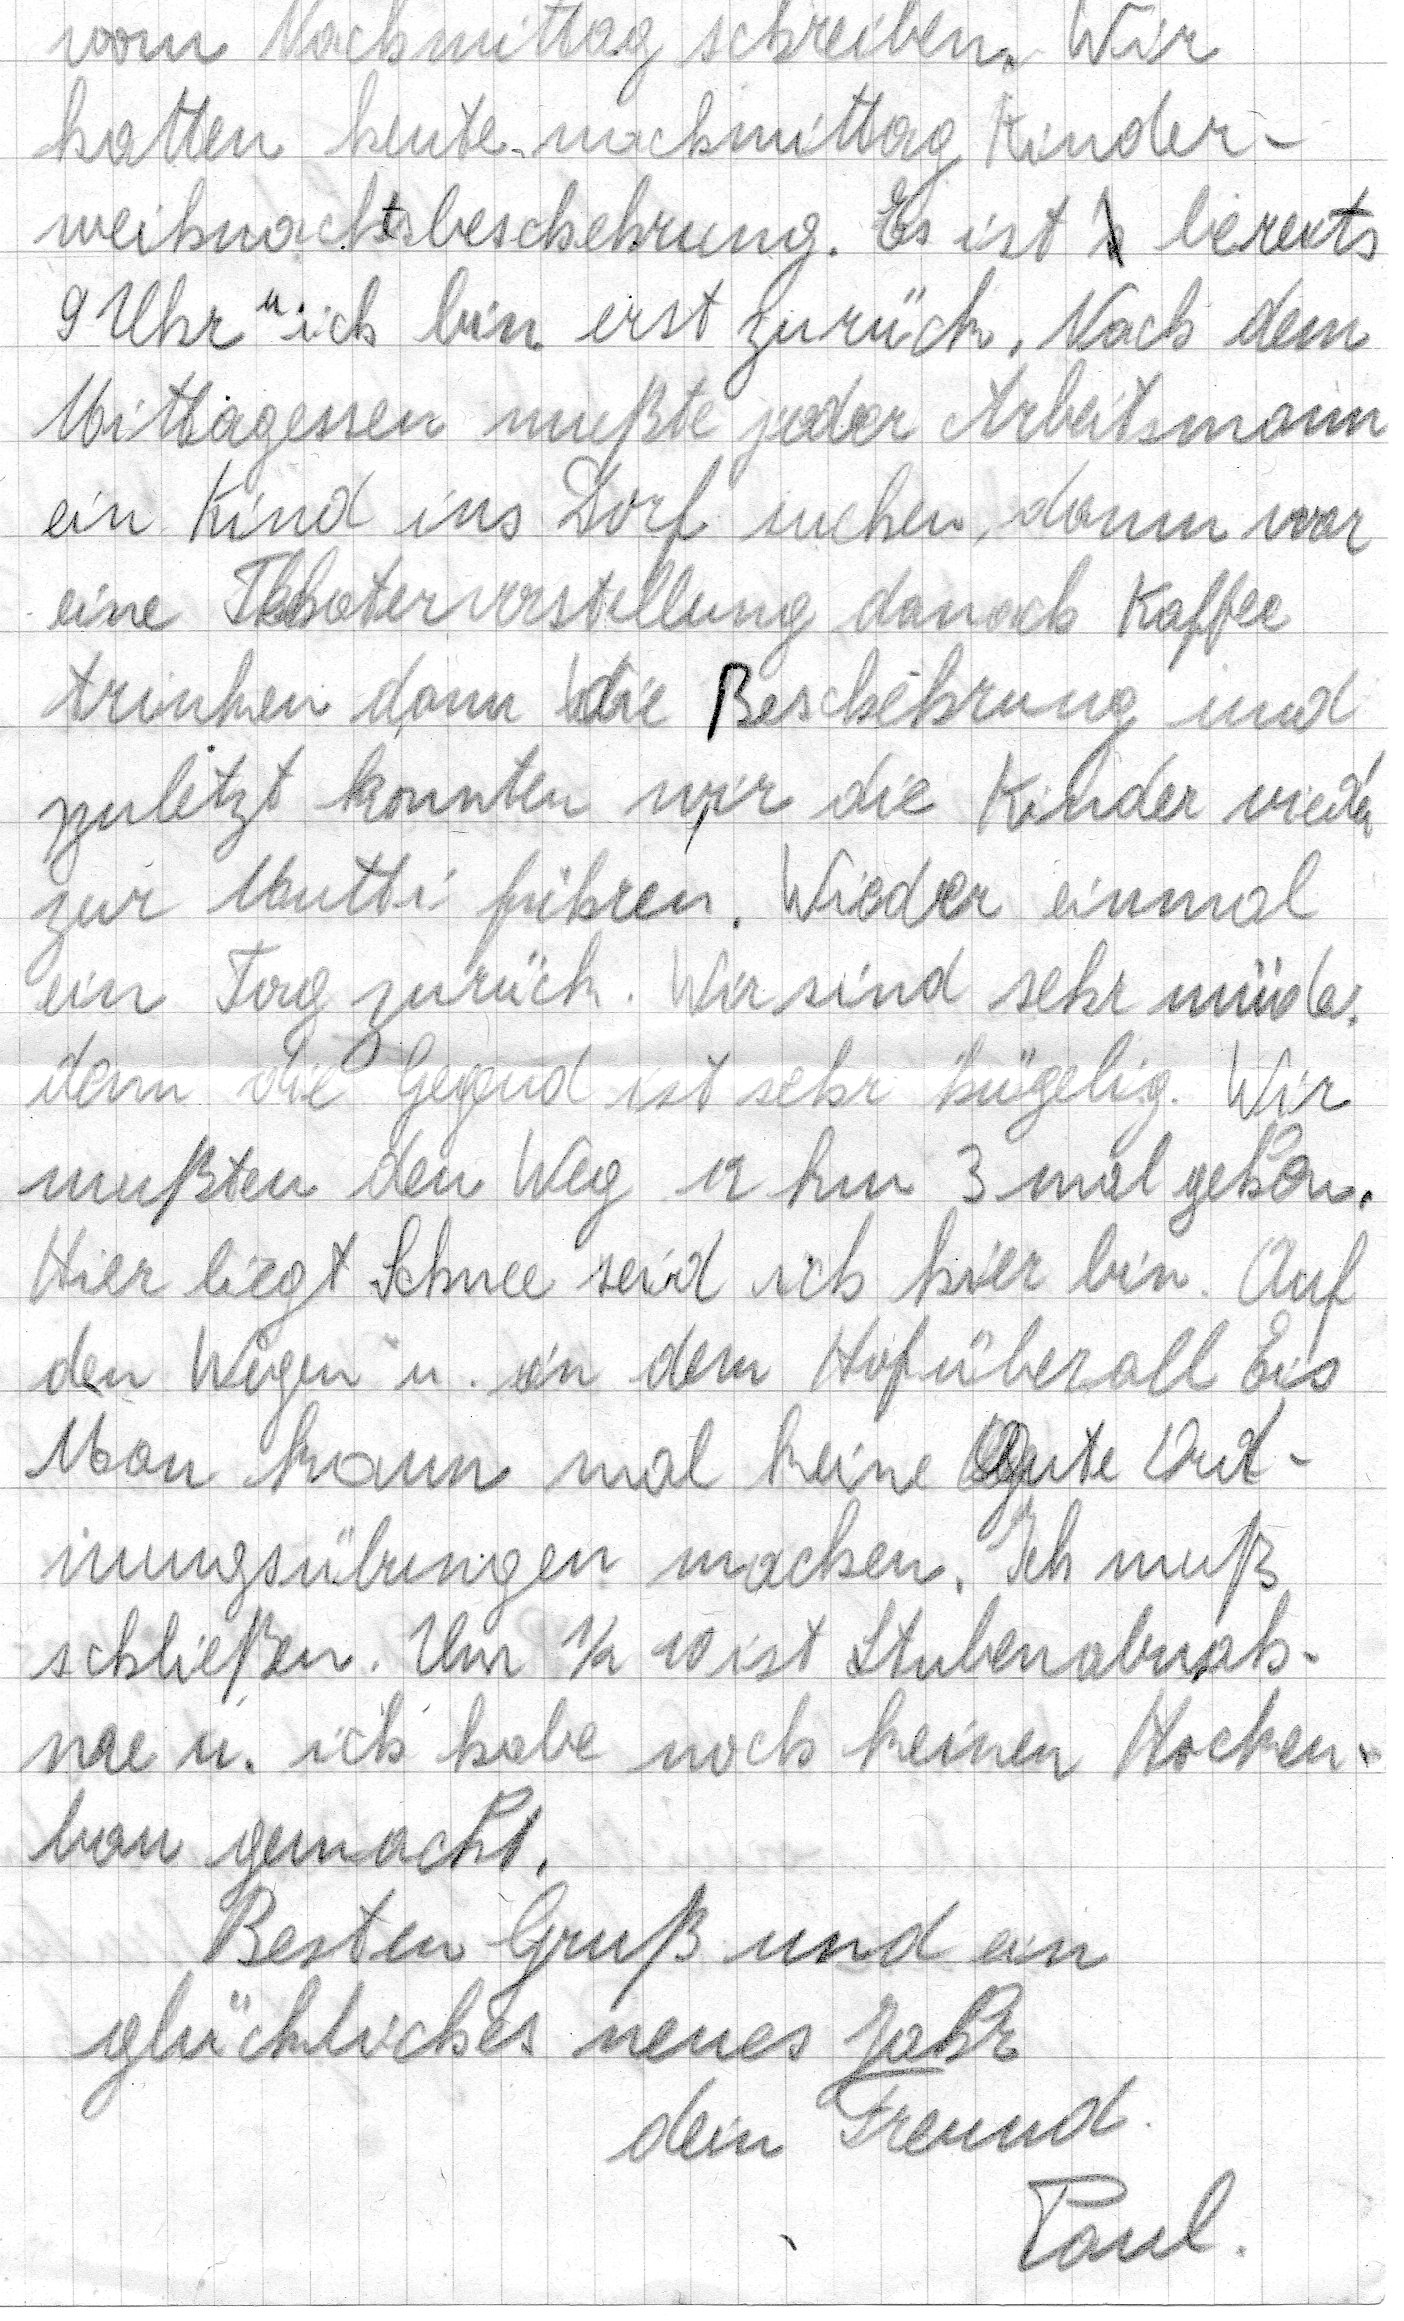 vom Nachmittag schreiben. Wir
hatten heute nachmittag Kinder-
weihnachtsbeschehrung. Es ist bereits
9 Uhr u. ich bin erst zurück. Nach dem
Mittagessen mußte jeder Arbeitsmann
ein Kind ins Dorf suchen, dann war
eine Theatervorstellung danach Kaffee
trinken dann die Beschehrung und
zuletzt konnten wir die Kinder wieder
zur Mutti führen. Wieder einmal
ein Tag zurück. Wir sind sehr müde.
denn die Gegend ist sehr hügelig. Wir
mußten den Weg 12 km 3 mal gehen.
Hier liegt Schnee seid ich hier bin. Auf
den Wegen u. in dem Hof überall Eis
Man kann mal keine gute Ord-
nungsübungen machen. Ich muß
schließen. Um ½ 10 ist Stubenabnah-
me u. ich habe noch keinen Hocken-
bau gemacht.
Besten Gruß und ein
glückliches neues Jahr
dein Freund.
Paul.